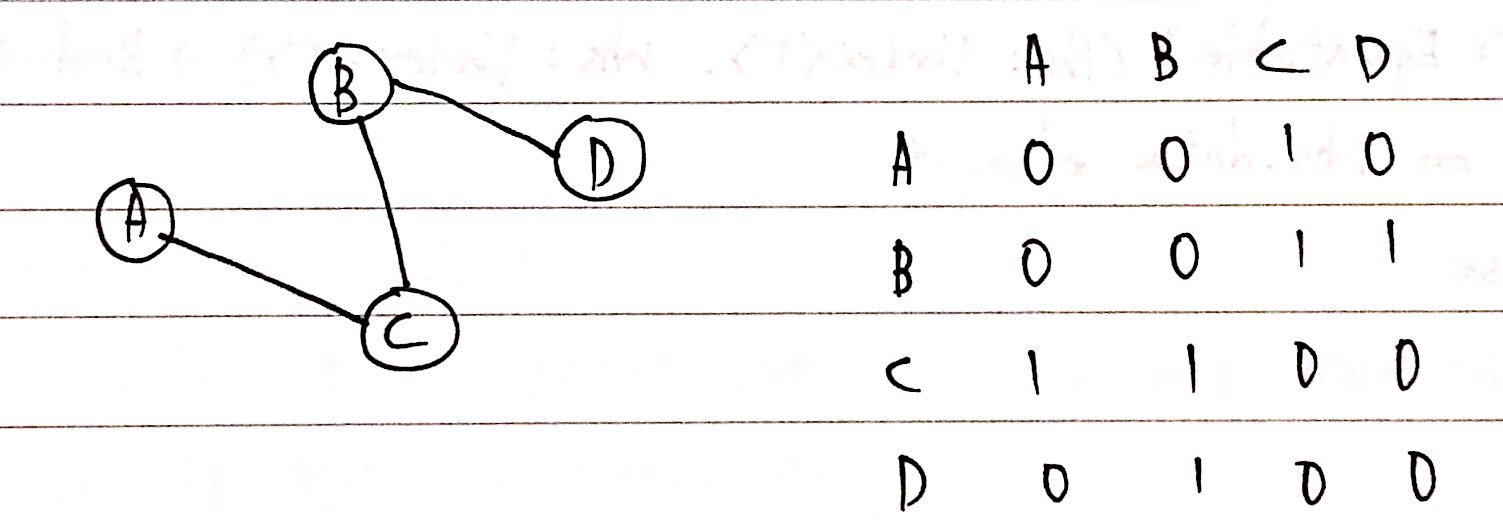 B
D
A
C
A B C D
A 0 0 1 0
B 0 0 1 1
C 1 1 0 0
D 0 1 0 0